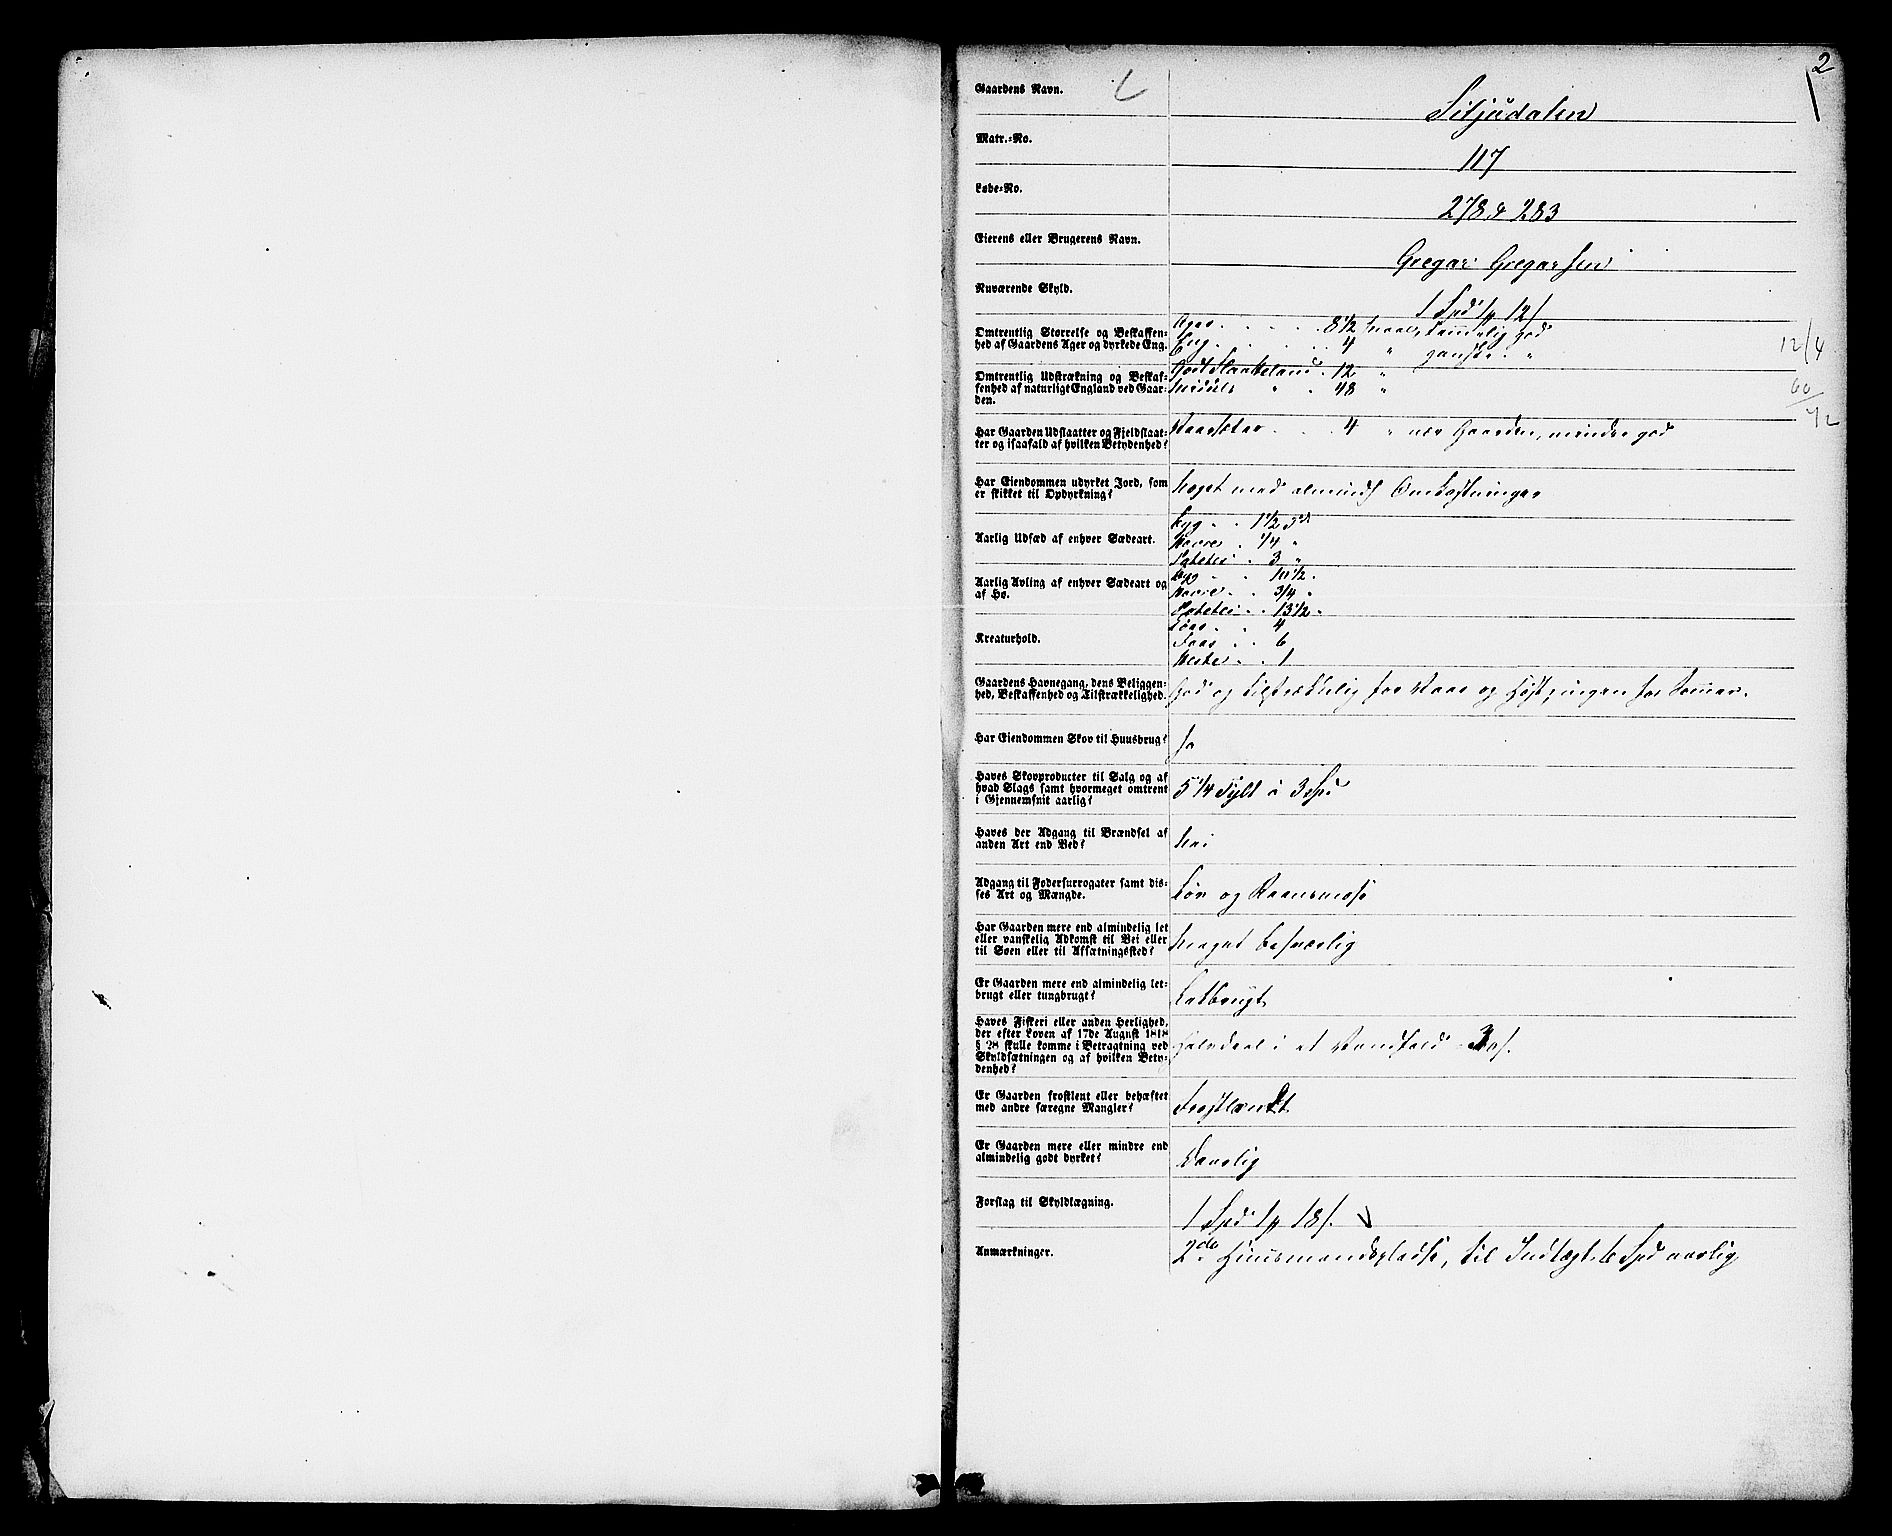 2
Gaardens Navn. Siljudalen
Matr.-No. 117
Løbe-No. 278 & 283
Eierens eller Brugerens Navn. Gregar Gregarsen
Nuværende Skyld. 1 Spd 1 12/
Omtrentlig Størrelse og Beskaffen-
hed af Gaardens Ager og dyrkede Eng.
Ager 8 1/2 Maal, temmelig god
Eng 4 " ganske "
12/4
Omtrentlig Udstrækning og Beskaf-
fenhed af naturligt England ved Gaar-
den.
God Slaatteland 12 "
Middels " 48 "
60/
72
Har Gaarden Udslaatter og Fjeldslaat-
ter og isaafald af hvilken Betydenhed?
Vaarsæter 4 " nær Gaarden, mindre god
Har Eiendommen udyrket Jord, som
er skikket til Opdyrkning?
Noget med almindl Omkostninger
Aarlig Udsæd af enhver Sædeart.
Byg 1 1/2
Havre 1/4 "
Poteter 3 "
Aarlig Avling af enhver Sædeart og
af Hø.
Byg 10 1/2 "
Havre 3/4 "
Poteter 13 1/2 "
Kreaturhold.
Kjør 4
Faar 6
Heste 1
Gaardens Havnegang, dens Beliggen-
hed, Beskaffenhed og Tilstrækkelighed.
God og tilstrækkelig for Vaar og Høst, ingen for Sommer.
Har Eiendommen Skov til Huusbrug? Ja
Haves Skovproducter til Salg og af
hvad Slags samt hvormeget omtrent
i Gjennemsnit aarlig?
5 1/4 Tylt à 3 Spd
Haves der Adgang til Brændsel af
anden Art end Ved?
Nei
Adgang til Foderfurrogater samt dis-
ses Art og Mængde.
Løv og Reensmose
Har Gaarden mere end almindelig let
eller vanskelig Adkomst til Vei eller
til Søen eller til Afsætningssted?
Meget besværlig
Er Gaarden mere end almindelig let-
brugt eller tungbrugt?
Letbrugt
Haves Fiskeri eller anden Herlighed,
der efter Loven af 17de August 1818
§ 28 skulle komme i Betragtning ved
Skyldsætningen og af hvilken Bety-
denhed?
Halvdeel i et Vandfald
Er Gaarden frostlent eller behæftet
med andre særegne Mangler?
Frostlændt
Er Gaarden mere eller mindre end
almindelig godt dyrket?
Daarlig
Forslag til Skyldlægning. 1 Spd 1 18/.
Anmærkninger. 2de Huusmandspladse, til Indtægt 6 Spd aarlig